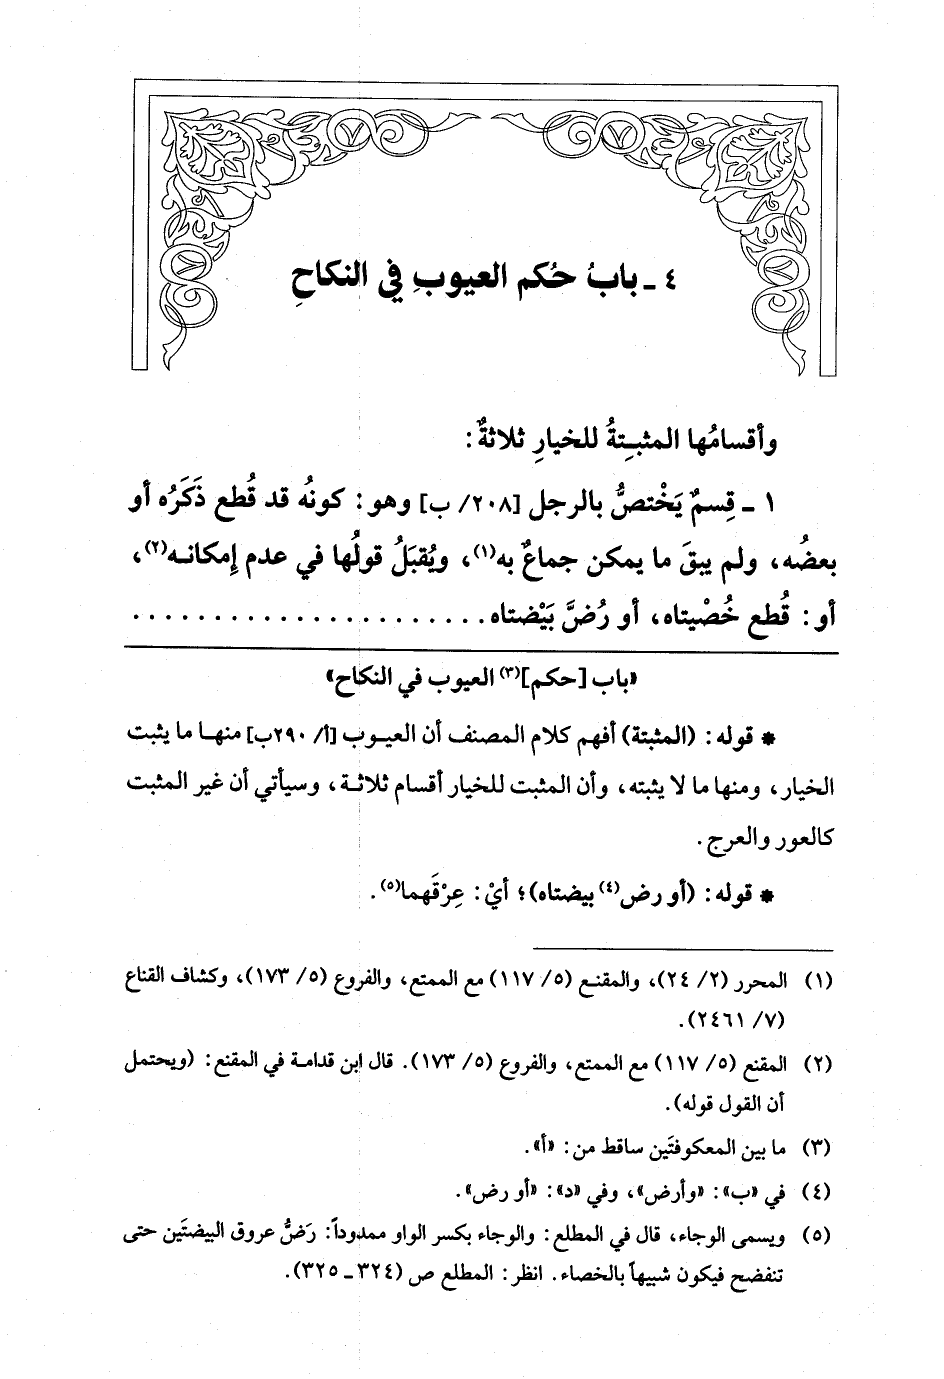 ٤ ـ بابُ حُكم العيوبِ في النكاحِ
وأقسامُها المثبِتةُ للخيارِ ثلاثةٌ:
١ ـ قِسمٌ يَخْتصُّ بالرجل [٢٠٨/ ب] وهو: كونُه قد قُطع ذَكَرُه أو
بعضُه، ولم يبقَ ما يمكن جماعٌ به(١)، ويُقبَلُ قولُها في عدم إمكانه(٢)،
أو: قُطع خُصْيتاه، أو رُضَّ بَيْضتاه......................
«باب [حكم](٣) العيوب في النكاح»
* قوله: (المثبتة) أفهم كلام المصنف أن العيوب [أ/ ٢٩٠ب] منها ما يثبت
الخيار، ومنها ما لا يثبته، وأن المثبت للخيار أقسام ثلاثة، وسيأتي أن غير المثبت
كالعور والعرج.
* قوله: (أو رض(٤) بيضتاه)؛ أيْ: عِرْقَهما(٥).
(١) المحرر (٢/ ٢٤)، والمقنع (٥/ ١١٧) مع الممتع، والفروع (٥/ ١٧٣)، وكشاف القناع
(٧/ ٢٤٦١).
(٢) المقنع (٥/ ١١٧) مع الممتع، والفروع (٥/ ١٧٣). قال ابن قدامة في المقنع: (ويحتمل
أن القول قوله).
(٣) ما بين المعكوفتَين ساقط من: «أ».
(٤) في «ب»: «وأرض»، وفي «د»: «أو رض».
(٥) ويسمى الوجاء، قال في المطلع: والوجاء بكسر الواو ممدوداً: رَضُّ عروق البيضتَين حتى
تنفضح فيكون شبيهاً بالخصاء. انظر: المطلع ص (٣٢٤ ـ ٣٢٥).